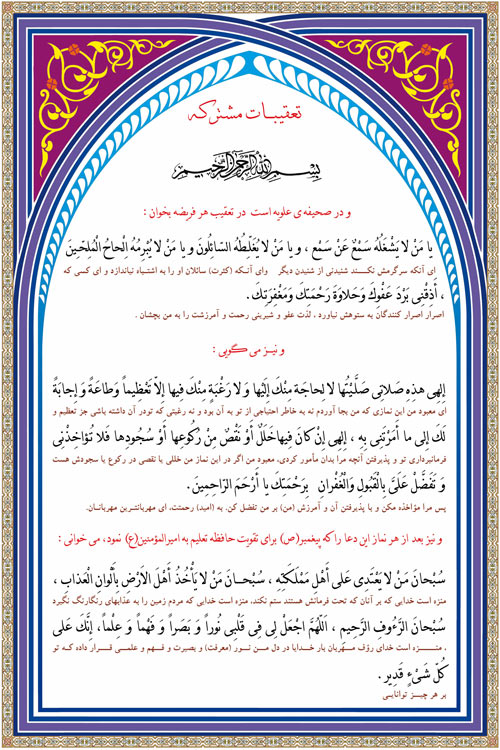 تعقیبات مشترکه
بِسْمِ اللهِ الرَّحْمنِ الرَّحِیمِ
و در صحیفه ی علویه است در تعقیب هر فریضه بخوان :
یا مَنْ لا یَشْغَلُهُ سَمْعٌ عَنْ سَمْعٍ ، و یا مَنْ لا یُغَلِّطُهُ السّائِلُونَ و یا مَنْ لا یُبْرِمُهُ اِلْحاحُ الْمُلِحّینَ
ای آنکه سرگرمش نکند شنیدنی از شنیدن دیگر وای آنکه (کثرت) سائلان او را به اشتباه نیاندازد و ای کسی که
، أَذِقْنی بَرْدَ عَفْوِكَ وَحَلاوَةَ رَحْمَتِكَ وَمَغْفِرَتِكَ .
اصرار اصرار کنندگان به ستوهش نیاورد ، لذت عفو و شیرینی رحمت و آمرزشت را به من بچشان .
و نیز می گویی :
اِلهی هذِهِ صَلاتی صَلَّیْتُها لا لِحاجَةٍ مِنْكَ إلَیْها وَ لا رَغْبَةٍ مِنْكَ فیها إلاّ تَعْظیماً وَ طاعَةً وَ إجابَةً
ای معبود من این نمازی که من بجا آوردم نه به خاطر احتیاجی از تو به آن بود و نه رغبتی که تودر آن داشته باشی جز تعظیم و
لَكَ إلی ما أَمَرْتَنی بِهِ ، إلهی إنْ کانَ فیها خَلَلٌ أَوْ نَقْصٌ مِنْ رُکُوعِها أَوْ سُجُودِها فَلا تُؤاخِذْنی
فرمانبرداری تو و پذیرفتن آنچه مرا بدان مأمور کردی، معبود من اگر در این نماز من خللی یا نقصی در رکوع یا سجودش هست
وَ تَفَضَّلْ عَلَیَّ بِالْقَبُولِ وَالْغُفْرانِ بِرَحْمَتِكَ یا أَرْحَمَ الرّاحِمینَ .
پس مرا مؤاخذه مکن و با پذیرفتن آن و آمرزش (من) بر من تفضل کن. به (امید) رحمتت، ای مهربانترین مهربانان.
و نیز بعد از هر نماز این دعا را که پیغمبر(ص) برای تقویت حافظه تعلیم به امیرالمؤمنین(ع) نمود، می خوانی :
سُبْحانَ مَنْ لا یَعْتَدی عَلی أَهْلِ مَمْلَکَتِهِ ، سُبْحانَ مَنْ لا یَأْخُذُ أَهْلَ الأَرْضِ بِأَلْوانِ الْعَذابِ ،
منزه است خدایی که بر آنان که تحت فرمانش هستند ستم نکند. منزه است خدایی که مردم زمین را به عذابهای رنگارنگ نگیرد
سُبْحانَ الرَّءُوفِ الرَّحیمِ ، اللّهُمَّ اجْعَلْ لی فی قَلْبی نُوراً وَ بَصَراً وَ فَهْماً وَ عِلْماً، إنَّكَ عَلی
، منزه است خدای رؤف مهربان بار خدایا در دل من نور (معرفت) و بصیرت و فهم و علمی قرار داده که تو
کُلِّ شَیْءٍ قَدیر .
بر هر چیز توانایی